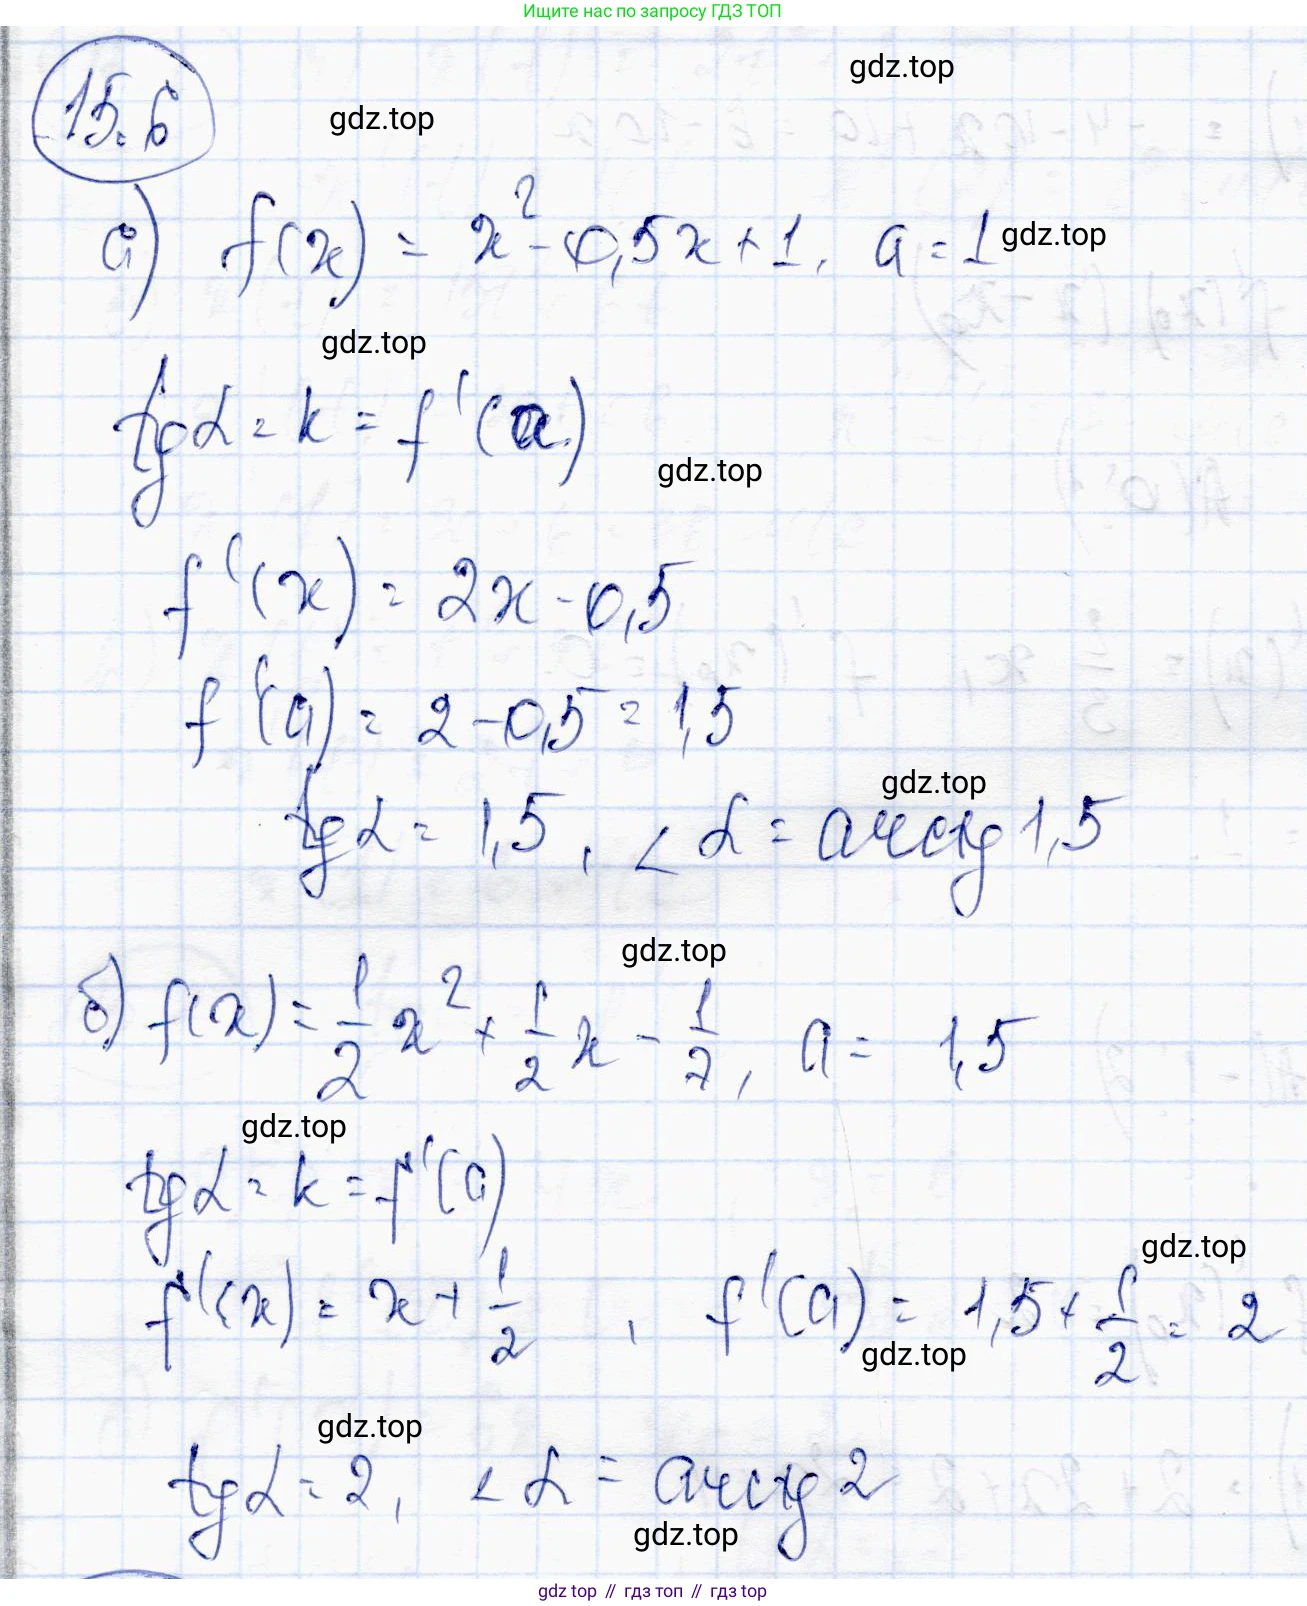 Ищите нас по запросу ГДЗ ТОП
gdz.top
15.6
gdz.top
а) f(x) = x² - 0,5x + 1, a = 1
gdz.top
gdz.top
tg α = k = f'(a)
gdz.top
f'(x) = 2x - 0,5
f'(a) = 2 - 0,5 = 1,5
gdz.top
tg α = 1,5, ∠ α = arctg 1,5
gdz.top
б) f(x) = 1/2 x² + 1/2 x - 1/7, a = 1,5
gdz.top
tg α = k = f'(a)
gdz.top
f'(x) = x + 1/2, f'(a) = 1,5 + 1/2 = 2
gdz.top
gdz.top
tg α = 2, ∠ α = arctg 2
gdz.top
gdz top // гдз топ // гдз top